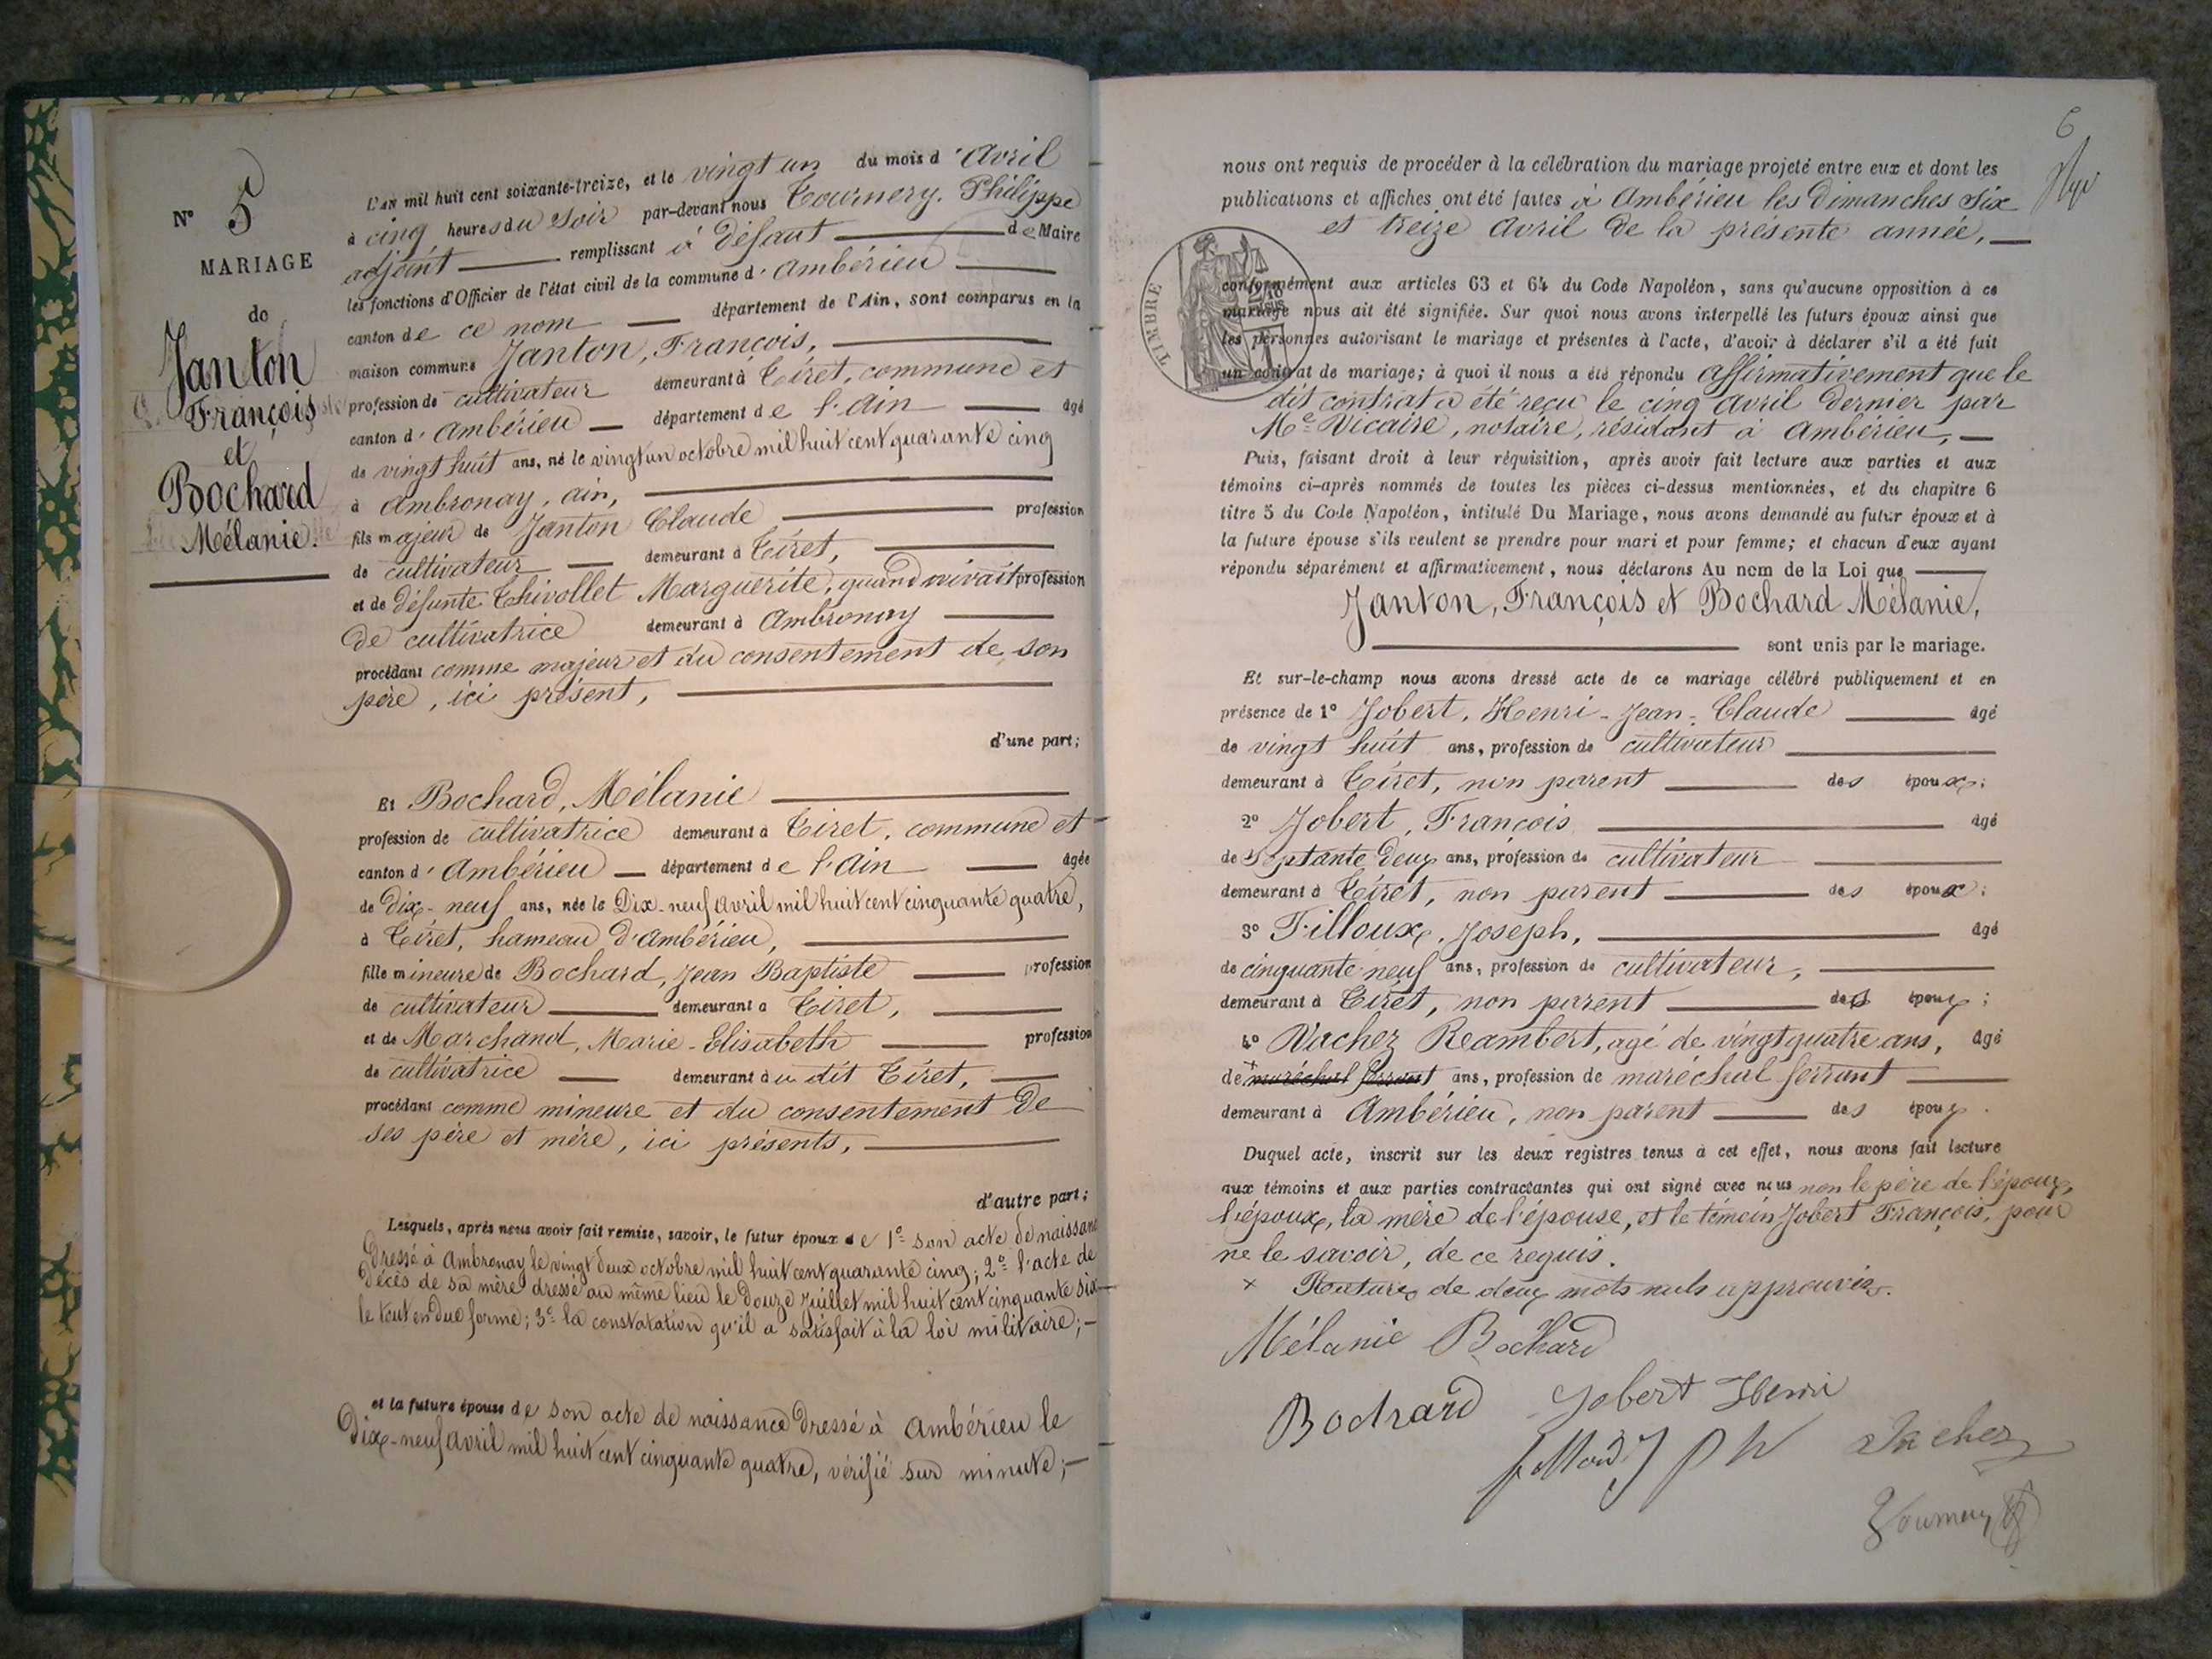 N° 5
MARIAGE
de
Janton
François
et
Bochard
Mélanie.
L'an mil huit cent soixante-treize, et le vingt un du mois d'Avril
à cinq heures du Soir par-devant nous Tournery. Philippe
adjoint remplissant à défaut de Maire
les fonctions d'Officier de l'état civil de la commune d'Ambérieu
canton de ce nom département de l'Ain, sont comparus en la
maison commune Janton, François,
profession de cultivateur demeurant à Tiret, commune et
canton d'Ambérieu département de l'Ain âgé
de vingt huit ans, né le vingt un octobre mil huit cent quarante cinq
à Ambronay, ain,
fils majeur de Janton Claude profession
de cultivateur demeurant à Tiret,
et de défunte Chivollet Marguerite, quand vivait profession
de cultivatrice demeurant à Ambronay
procédant comme majeur et du consentement de son
père, ici présent,
d'une part;
Et Bochard, Mélanie
profession de cultivatrice demeurant à Tiret, commune et
canton d'Ambérieu département de l'Ain âgée
de dix-neuf ans, née le Dix-neuf avril mil huit cent cinquante quatre,
à Tiret, hameau d'Ambérieu,
fille mineure de Bochard, Jean Baptiste profession
de cultivateur demeurant à Tiret,
et de Marchand, Marie-Elisabeth profession
de cultivatrice demeurant au dit Tiret,
procédant comme mineure et du consentement de
ses père et mère, ici présents,
d'autre part;
Lesquels, après nous avoir fait remise, savoir, le futur époux de 1° son acte de naissance
dressé à Ambronay le vingt deux octobre mil huit cent quarante cinq; 2° l'acte de
décès de sa mère dressé au même lieu le douze juillet mil huit cent cinquante six
le tout en due forme; 3° la constatation qu'il a satisfait à la loi militaire;
et la future épouse de son acte de naissance dressé à Ambérieu le
Dix-neuf avril mil huit cent cinquante quatre, vérifié sur minute;
6
nous ont requis de procéder à la célébration du mariage projeté entre eux et dont les
publications et affiches ont été faites à Ambérieu les Dimanches six
et treize Avril de la présente année,
TIMBRE
conformément aux articles 63 et 64 du Code Napoléon, sans qu'aucune opposition à ce
mariage nous ait été signifiée. Sur quoi nous avons interpellé les futurs époux ainsi que
les personnes autorisant le mariage et présentes à l'acte, d'avoir à déclarer s'il a été fait
un contrat de mariage; à quoi il nous a été répondu Affirmativement que le
dit contrat a été reçu le cinq Avril dernier par
Me Vicaire, notaire, résidant à Ambérieu,
Puis, faisant droit à leur réquisition, après avoir fait lecture aux parties et aux
témoins ci-après nommés de toutes les pièces ci-dessus mentionnées, et du chapitre 6
titre 5 du Code Napoléon, intitulé Du Mariage, nous avons demandé au futur époux et à
la future épouse s'ils veulent se prendre pour mari et pour femme; et chacun d'eux ayant
répondu séparément et affirmativement, nous déclarons Au nom de la Loi que
Janton, François et Bochard Mélanie,
sont unis par le mariage.
Et sur-le-champ nous avons dressé acte de ce mariage célébré publiquement et en
présence de 1° Jobert. Henri-Jean-Claude âgé
de vingt huit ans, profession de cultivateur
demeurant à Tiret, non parent des époux;
2° Jobert, François âgé
de septante deux ans, profession de cultivateur
demeurant à Tiret, non parent des époux;
3° Filloux, Joseph, âgé
de cinquante neuf ans, profession de cultivateur,
demeurant à Tiret, non parent des époux;
4° Vachez Reambert, agé de vingt quatre ans, âgé
de maréchal ferrant ans, profession de maréchal ferrant
demeurant à Ambérieu, non parent des époux.
Duquel acte, inscrit sur les deux registres tenus à cet effet, nous avons fait lecture
aux témoins et aux parties contractantes qui ont signé avec nous non le père de l'époux,
l'époux, la mère de l'épouse, et le témoin Jobert François, pour
ne le savoir, de ce requis.
× Rature de deux mots nuls approuvée.
Mélanie Bochard
Bochard Jobert Henri
Vachez
Tournery